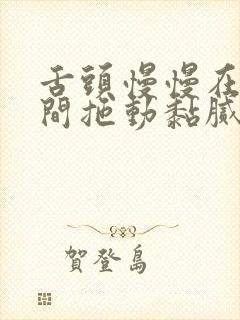 舌頭慢慢在
間拖動黏膩
賀登島